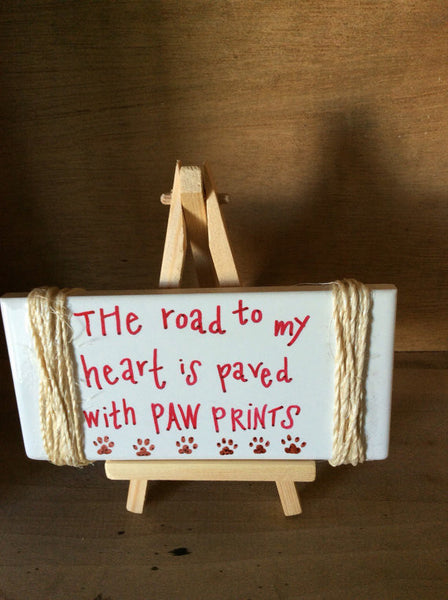 THe road to my
heart is paved
with PAW PRINTS